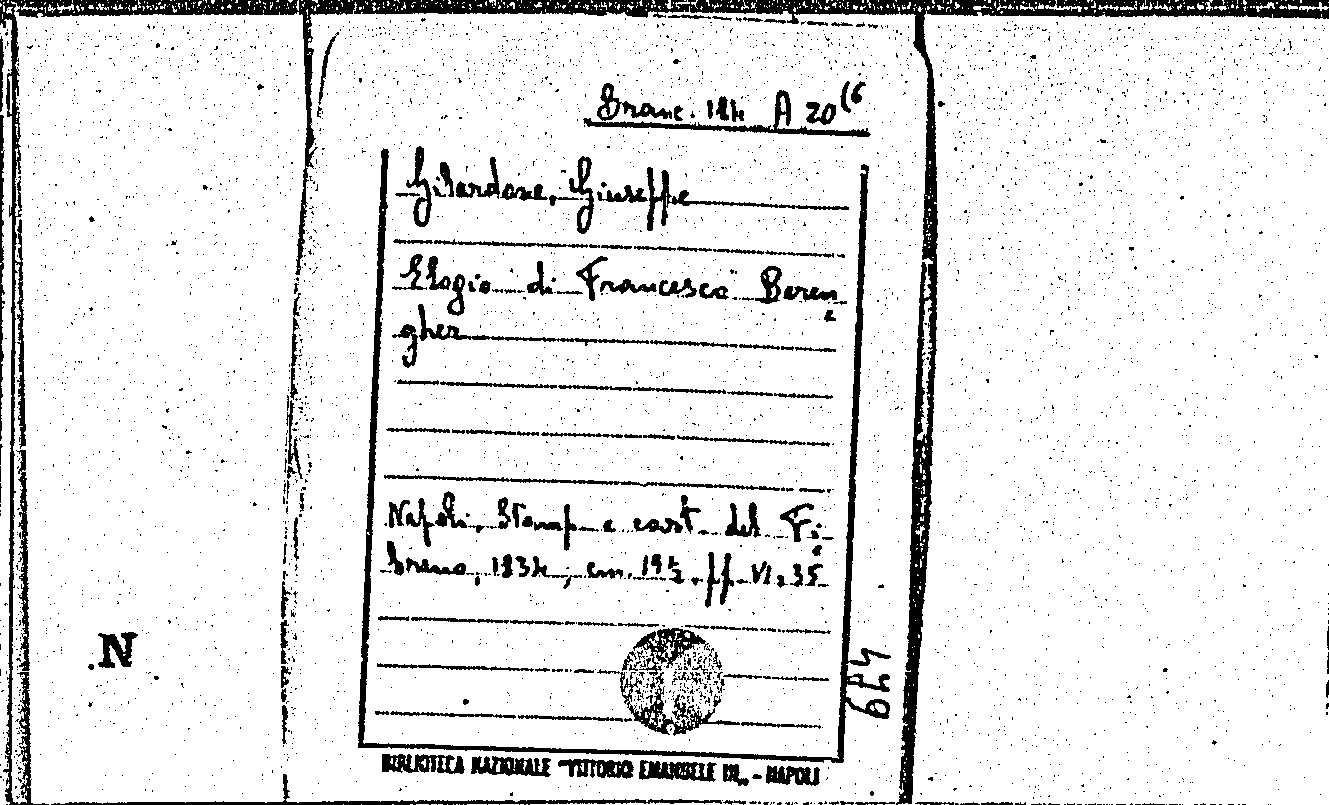 Branc. 124 A 20(6
Gilardone, Giuseppe
Elogio di Francesco Beren
gher
Napoli, Stamp e cart. del Fi-
breno, 1834; cm. 19½. pp. VI, 35
449
N
BIBLIOTECA NAZIONALE "VITTORIO EMANUELE III„ - NAPOLI